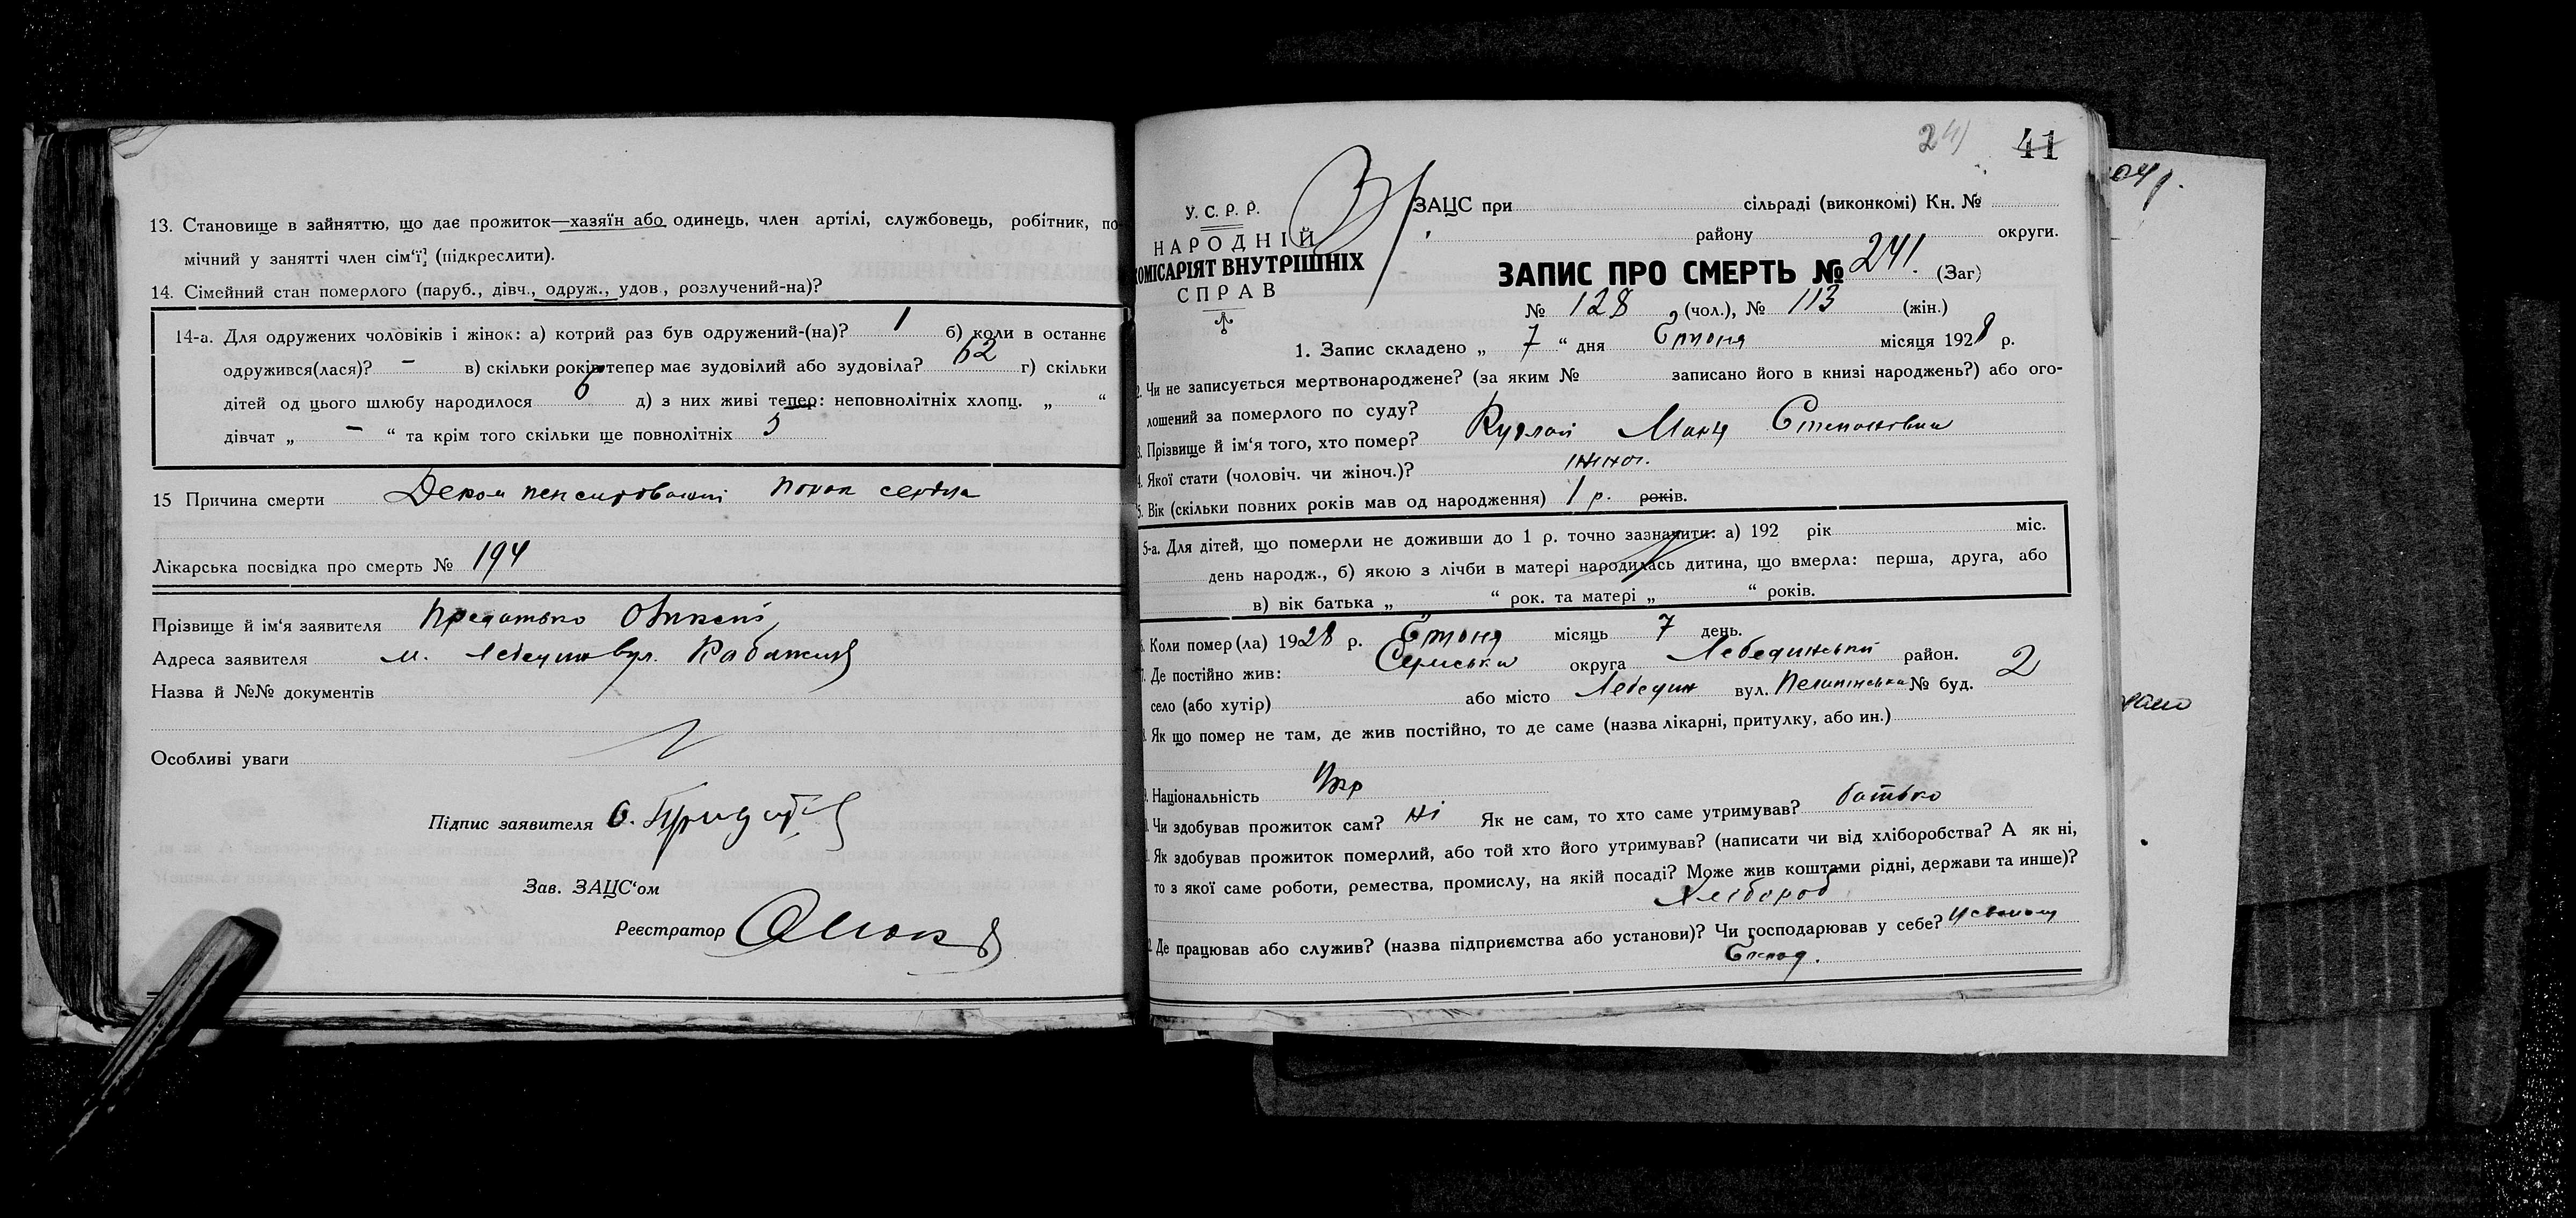 13. Становище в зайняттю, що дає прожиток—хазяїн або одинець, член артілі, службовець, робітник, по-
мічний у занятті член сім'ї; (підкреслити).
14. Сімейний стан померлого (паруб., дівч., одруж., удов., розлучений-на)?
14-а. Для одружених чоловіків і жінок: а) котрий раз був одружений-(на)? 1 б) коли в останнє
одружився(лася)? – в) скільки років тепер має зудовілий або зудовіла? 62 г) скільки
дітей од цього шлюбу народилося 6 д) з них живі тепер: неповнолітніх хлопц. „ “
дівчат „ – “ та крім того скільки ще повнолітніх 5
15 Причина смерти Декомпенсирований порок сердца
Лікарська посвідка про смерть № 194
Прізвище й ім'я заявителя
Адреса заявителя м. Лебедин вул.
Назва й №№ документів
Особливі уваги
Підпис заявителя
Зав. ЗАЦС'ом
Реєстратор
241 41
У. С. Р. Р.
НАРОДНІЙ
КОМІСАРІЯТ ВНУТРІШНІХ
СПРАВ
ЗАЦС при сільраді (виконкомі) Кн. №
району округи.
ЗАПИС ПРО СМЕРТЬ № 241. (Заг)
№ 128 (чол.), № 113 (жін.)
1. Запис складено „ 7 “ дня Січня місяця 1928 р.
2. Чи не записується мертвонароджене? (за яким № записано його в книзі народжень?) або ого-
лошений за померлого по суду?
3. Прізвище й ім'я того, хто помер? Степановна
4. Якої стати (чоловіч. чи жіноч.)? жіноч.
5. Вік (скільки повних років мав од народження) 1 р. років.
5-а. Для дітей, що померли не доживши до 1 р. точно зазначити: а) 192 рік міс.
день народж., б) якою з лічби в матері народилась дитина, що вмерла: перша, друга, або
в) вік батька „ “ рок. та матері „ “ років.
6. Коли помер(ла) 1928 р. Січня місяць 7 день.
7. Де постійно жив: Сумська округа Лебединський район.
село (або хутір) або місто Лебедин вул. № буд. 2
Як що помер не там, де жив постійно, то де саме (назва лікарні, притулку, або ин.)
Національність Укр
Чи здобував прожиток сам? Ні Як не сам, то хто саме утримував? батько
Як здобував прожиток померлий, або той хто його утримував? (написати чи від хліборобства? А як ні,
то з якої саме роботи, ремества, промислу, на якій посаді? Може жив коштами рідні, держави та инше)?
Хлібороб
Де працював або служив? (назва підприємства або установи)? Чи господарював у себе? У своєму